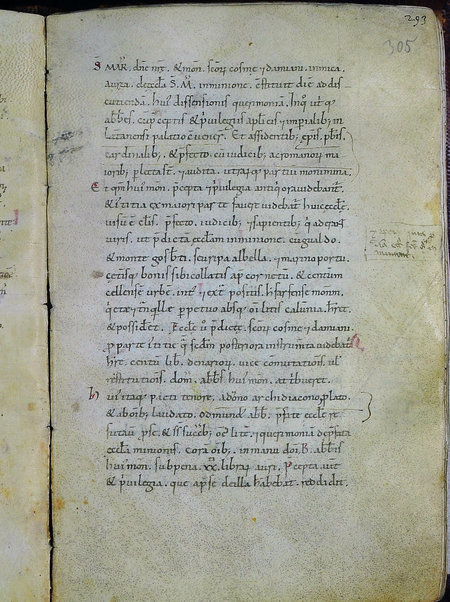 293
305
S MAR. dñe nrẽ. & mon̄. scõr̨ cosme 7 damiani. in mica
aurea. de eccl̃a S. M. in minione. c̃stituit die ad dis
cutienda. hui' dissensionis querimonia. In q̃ uterq;
abbes. cum p̃ceptis & p̃uilegiis apl̃icis 7 imperialib; in
lateranensi palatio c̃uener̃. Et assidentib; ep̃is. pb̃is.
cardinalib; & p̃fecto. cũ iudicib; ac romanor̨ ma
iorib; p̃lecta s̃t. 7 audita. utrarũq; partiũ monimina.
Et qm̃ hui' mon̄. p̃cepta 7 p̃uilegia antiq̃ora uidebant̃.
& iustitia ex maiori parte fauere uidebat̃ huic eccl̃e.
uisũ ẽ
p̃fecto. iudicib; 7 sapientib; q̃ aderant
uiris. ut p̃dicta eccl̃am in minione. cũ gualdo.
& monte gosb̃ti. seu ripa albella. 7 marino portu.
ceterisq; bonis sibi collatis ap̃ cornetũ. & centum
cellensẽ urbẽ. int̃ 7 ext̃ positis. h̃ farfense mon̄m.
quiete & tranquille p̃petuo absq; om̃i litis calũnia. h̃ret
& possideret. Eccl̃e ũ p̃dicte. scõr̨ cosme 7 damiani.
p̃ parte iustitie q̃ s̃cdm̃ posteriora instrum̃ta uidebat̃
h̃re. centũ lib. denarior̨. uice com̃utationis. ul̃
restitutionis. dom̃. abb̃s hui' mon̄. attribueret.
Huiusitaq; pacti tenore. ad
archidiacono p̃lato.
& ab om̃ib; laudato. odemund' abb̃. p̃fate eccl̃e re
futauit p̃ se. & suis succ̃ssorib; om̃e lite. 7 querimonia de p̃fata
eccl̃a minionis. corã om̃ib; in manu dom̃i. B. abb̃tis
hui' mon̄. sub pena. XX. librar̨ auri. P̃cepta aut̃
& p̃uilegia. que ap̃ se de illa h̃abebat. reddidit.